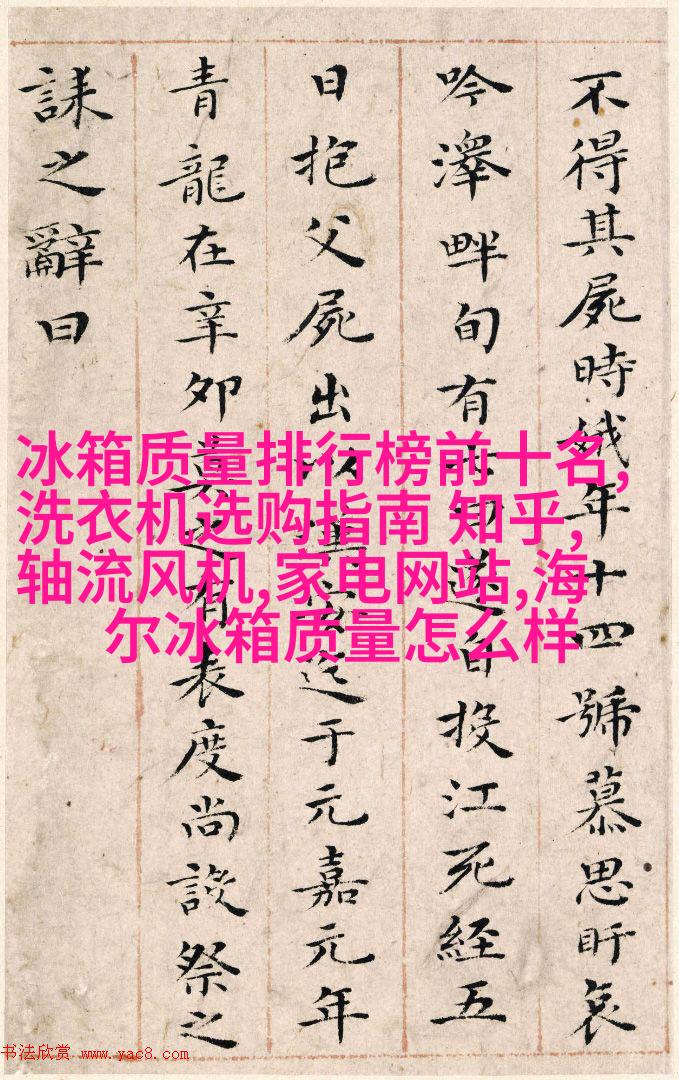 不得其屍時娥年十四號慕思盱哀
吟澤畔旬有七日遂自投江死經五
日抱父屍出以漢安迄于元嘉元年
青龍在辛卯莫之有表度尚設祭之
誄之辭曰
冰箱质量排行榜前十名,
洗衣机选购指南 知乎,
轴流风机,家电网站,海
尔冰箱质量怎么样
书法欣赏 www.yac8.com